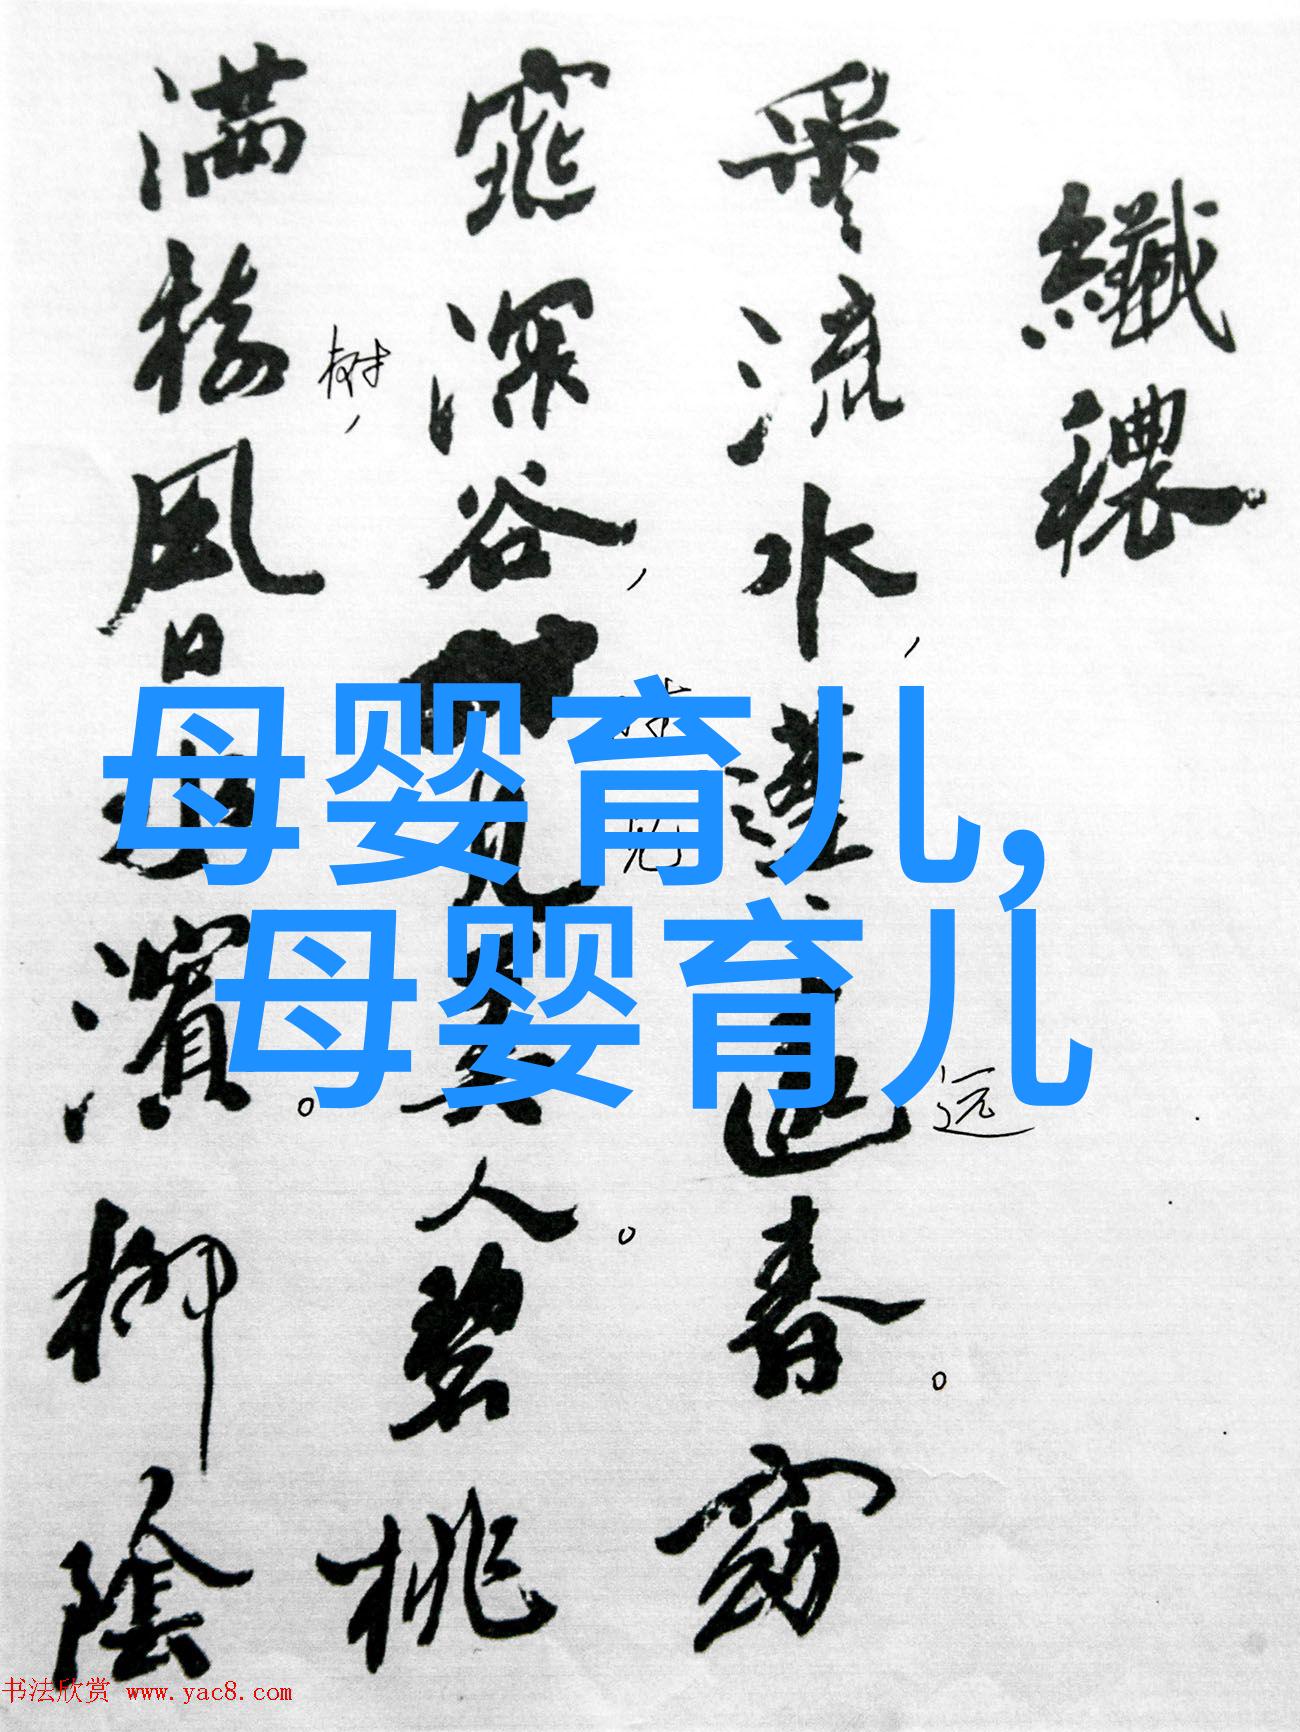 纖穠
采流水，蓬
远春。窈
远
窕深谷，
見美人。碧桃
满樹風日
树，
濱。柳陰
母婴育儿，
母婴育儿
书法欣赏 www.yac8.com